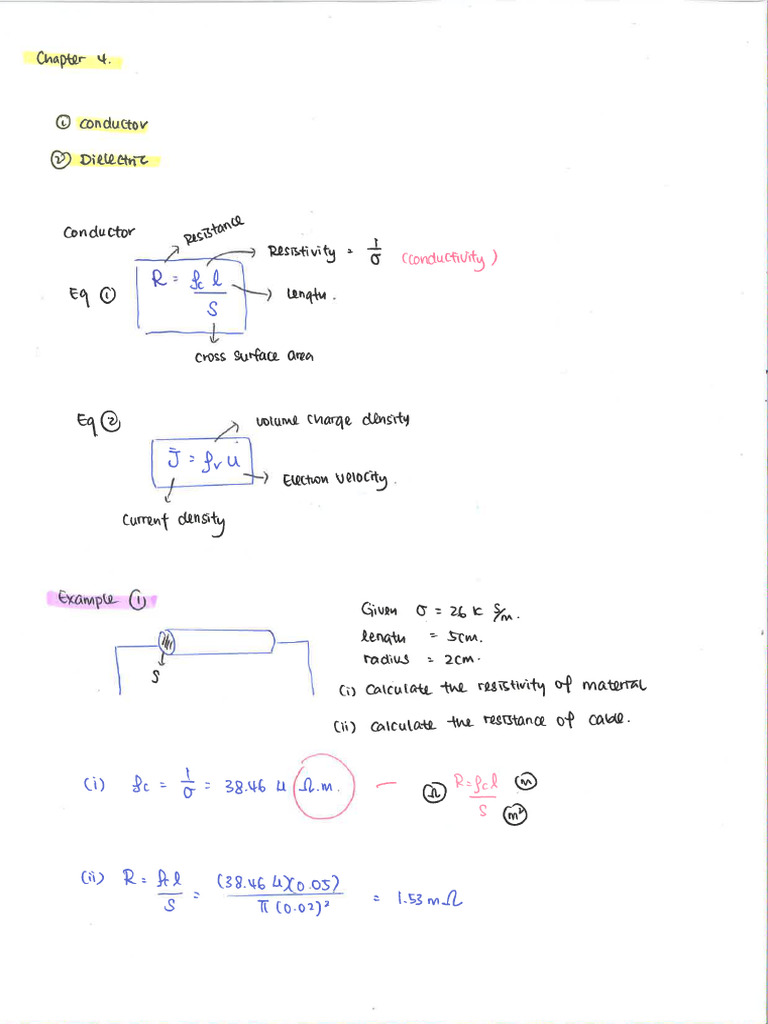 Chapter 4.
① Conductor
② Dielectric
Conductor
Resistance
Resistivity = 1/σ (conductivity)
Eq ① R = ρc l / S
Length.
Cross surface area
Eq ②
Volume charge density
J̄ = ρv ū
Electron Velocity.
Current density
Example ①
Given σ = 26 k S/m.
length = 5cm.
radius = 2cm.
S
(i) Calculate the resistivity of material
(ii) Calculate the resistance of cable.
(i) ρc = 1/σ = 38.46 μ Ω.m. — Ω R = ρc l / S m m²
(ii) R = ρc l / S = (38.46 μ)(0.05) / π (0.02)² = 1.53 mΩ